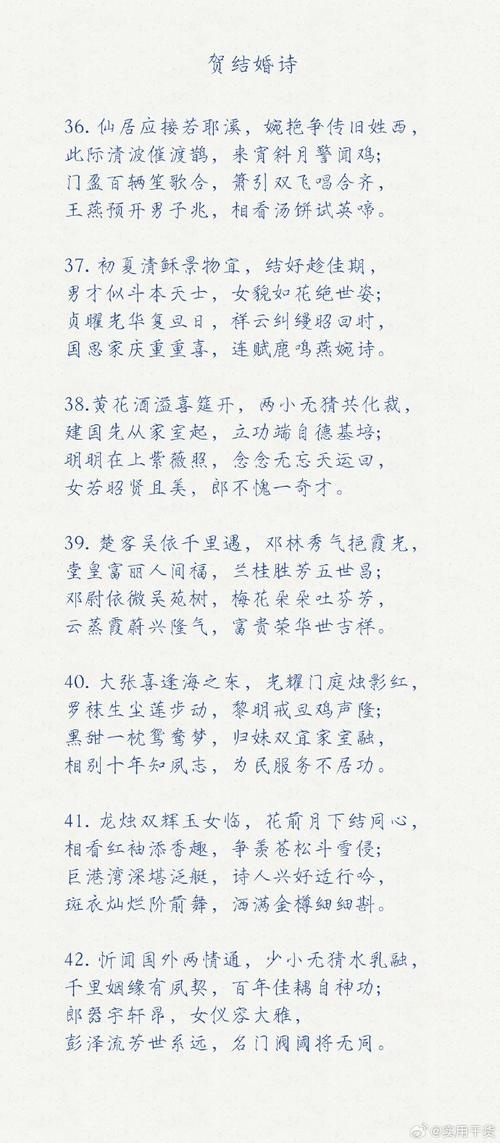 贺结婚诗
36. 仙居应接若耶溪，婉艳争传旧姓西，
此际清波催渡鹊，来宵斜月警闻鸡；
门盈百辆笙歌合，箫引双飞唱合齐，
王燕预开男子兆，相看汤饼试英啼。
37. 初夏清稣景物宜，结好趁佳期，
男才似斗本天士，女貌如花绝世姿；
贞曜光华复旦日，祥云纠缦昭回时，
国思家庆重重喜，连赋鹿鸣燕婉诗。
38.黄花酒溢喜筵开，两小无猜共化裁，
建国先从家室起，立功端自德基培；
明明在上紫薇照，念念无忘天运回，
女若昭贤且美，郎不愧一奇才。
39. 楚客吴依千里遇，邓林秀气挹霞光，
堂皇富丽人间福，兰桂胜芳五世昌；
邓尉依微吴苑树，梅花朵朵吐芬芳，
云蒸霞蔚兴隆气，富贵荣华世吉祥。
40. 大张喜逢海之东，光耀门庭烛影红，
罗袜生尘莲步动，黎明戒旦鸡声隆；
黑甜一枕鸳鸯梦，归妹双宜家室融，
相别十年知夙志，为民服务不居功。
41. 龙烛双辉玉女临，花前月下结同心，
相看红袖添香趣，争羡苍松斗雪侵；
巨港湾深堪泛艇，诗人兴好适行吟，
斑衣灿烂阶前舞，洒满金樽细细斟。
42. 忻闻国外两情通，少小无猜水乳融，
千里姻缘有夙契，百年佳耦自神功；
郎器宇轩昂，女仪容大雅，
彭泽流芳世系远，名门阀阅将无同。
@实用干货